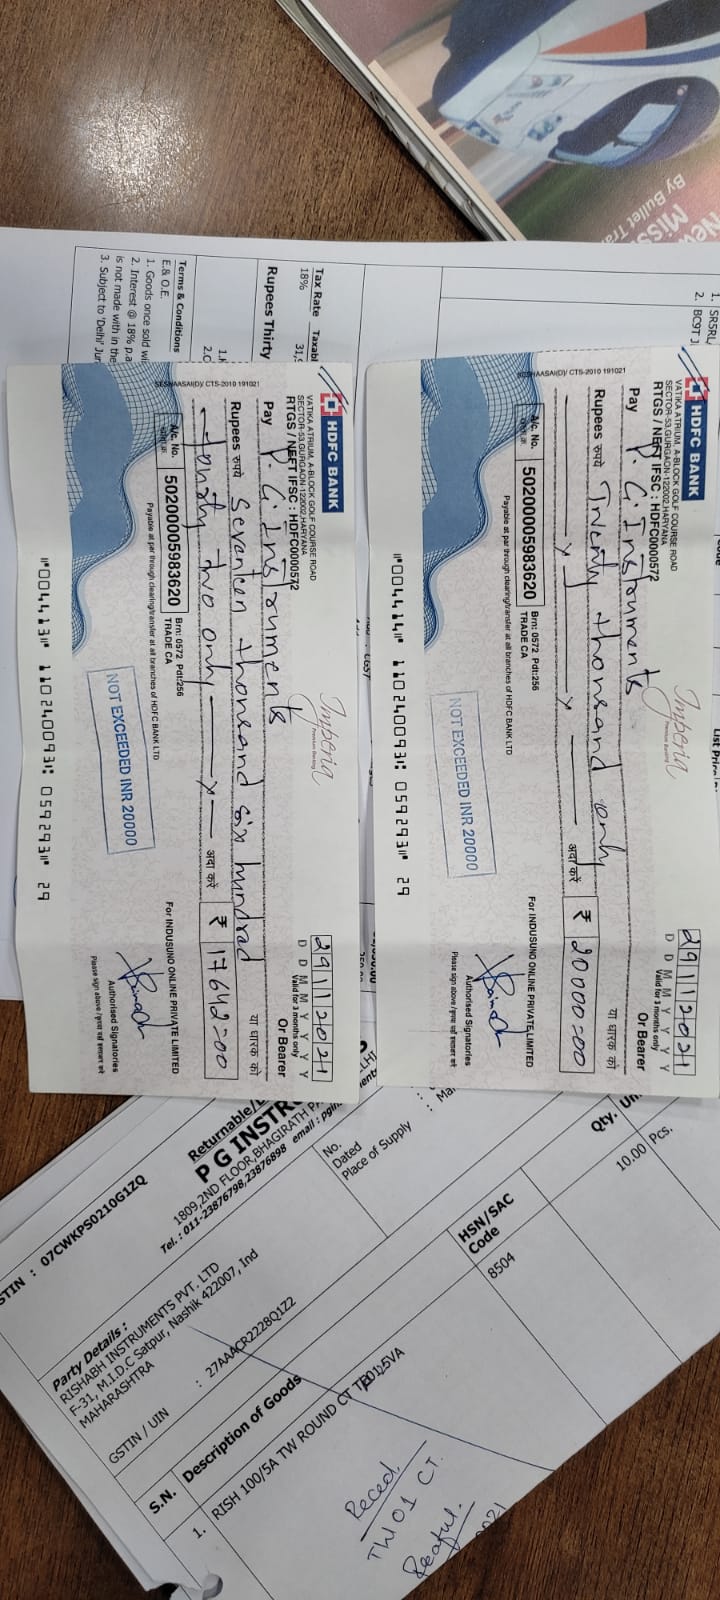 New
Miss
By Bullet Tra
1. SR5RL/
2. BC9T J
Tax Rate Taxabl
18% 31,9
Rupees Thirty
Terms & Conditions
E.& O.E.
1. Goods once sold wi
2. Interest @ 18% p.a
is not made with in the
3. Subject to 'Delhi' Jur
HDFC BANK
VATIKA ATRIUM, A-BLOCK GOLF COURSE ROAD
SECTOR-53,GURGAON-122002,HARYANA
RTGS / NEFT IFSC : HDFC0000572
Imperia
Premium Banking
29112021
D D M M Y Y Y Y
Valid for 3 months only
Pay P. G Instruments
Or Bearer
या धारक को
Rupees रुपये Twenty thousand only
अदा करें ₹ 20000=00
A/c. No. 50200005983620
Brn: 0572 Pdt:256
TRADE CA
Payable at par through clearing/transfer at all branches of HDFC BANK LTD
NOT EXCEEDED INR 20000
For INDUSUNO ONLINE PRIVATE LIMITED
Authorised Signatories
Please sign above
CTS-2010 191021
⑈004414⑈ 110240093⑆ 059293⑈ 29
HDFC BANK
VATIKA ATRIUM, A-BLOCK GOLF COURSE ROAD
SECTOR-53,GURGAON-122002,HARYANA
RTGS / NEFT IFSC : HDFC0000572
Imperia
Premium Banking
29112021
D D M M Y Y Y Y
Valid for 3 months only
Pay P. G Instruments
Or Bearer
या धारक को
Rupees रुपये Seventeen thousand six hundrad
fourty two only
अदा करें ₹ 17642=00
A/c. No. 50200005983620
Brn: 0572 Pdt:256
TRADE CA
Payable at par through clearing/transfer at all branches of HDFC BANK LTD
NOT EXCEEDED INR 20000
For INDUSUNO ONLINE PRIVATE LIMITED
Authorised Signatories
Please sign above
CTS-2010 191021
⑈004413⑈ 110240093⑆ 059293⑈ 29
GSTIN : 07CWKPS0210G1ZQ
Returnable/
P G INSTR
1809,2ND FLOOR,BHAGIRATH PA
Tel. : 011-23876798,23876898 email : pgin
Party Details :
RISHABH INSTRUMENTS PVT. LTD
F-31, M.I.D.C Satpur, Nashik 422007, Ind
MAHARASHTRA
GSTIN / UIN : 27AAACR2228Q1Z2
No.
Dated
Place of Supply : Ma
S.N. Description of Goods HSN/SAC Code Qty. Un
1. RISH 100/5A TW ROUND CT 8504 10.00 Pcs.
Reced.
TW 01 CT.